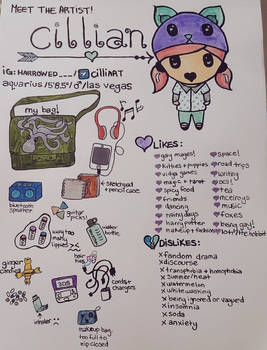 MEET THE ARTIST!
cillian
iG: HARROWED___/ cilliART
aquarius/5'8.5"/♂/las vegas
my bag!
+ sketchpad +
pencil case
bluetooth
speaker
guitar
picks
way too
many
lippies
hair
ginger
candy
3DS
cords +
chargers
inhaler
makeup bag:
too full to
zip closed
LIKES:
gay mages!
kitties + puppies
vidya games
magic + tarot
spicy food
friends
dancing
rainy days
harry potter
makeup + fashion
space!
road trips
writing
ocs!
tea
mcelroys
music
foxes
being gay!
DISLIKES:
x fandom drama
x discourse
x transphobia + homophobia
x summer/heat
x watermelon
x whitewashing
x being ignored or vagued
x insomnia
x soda
x anxiety